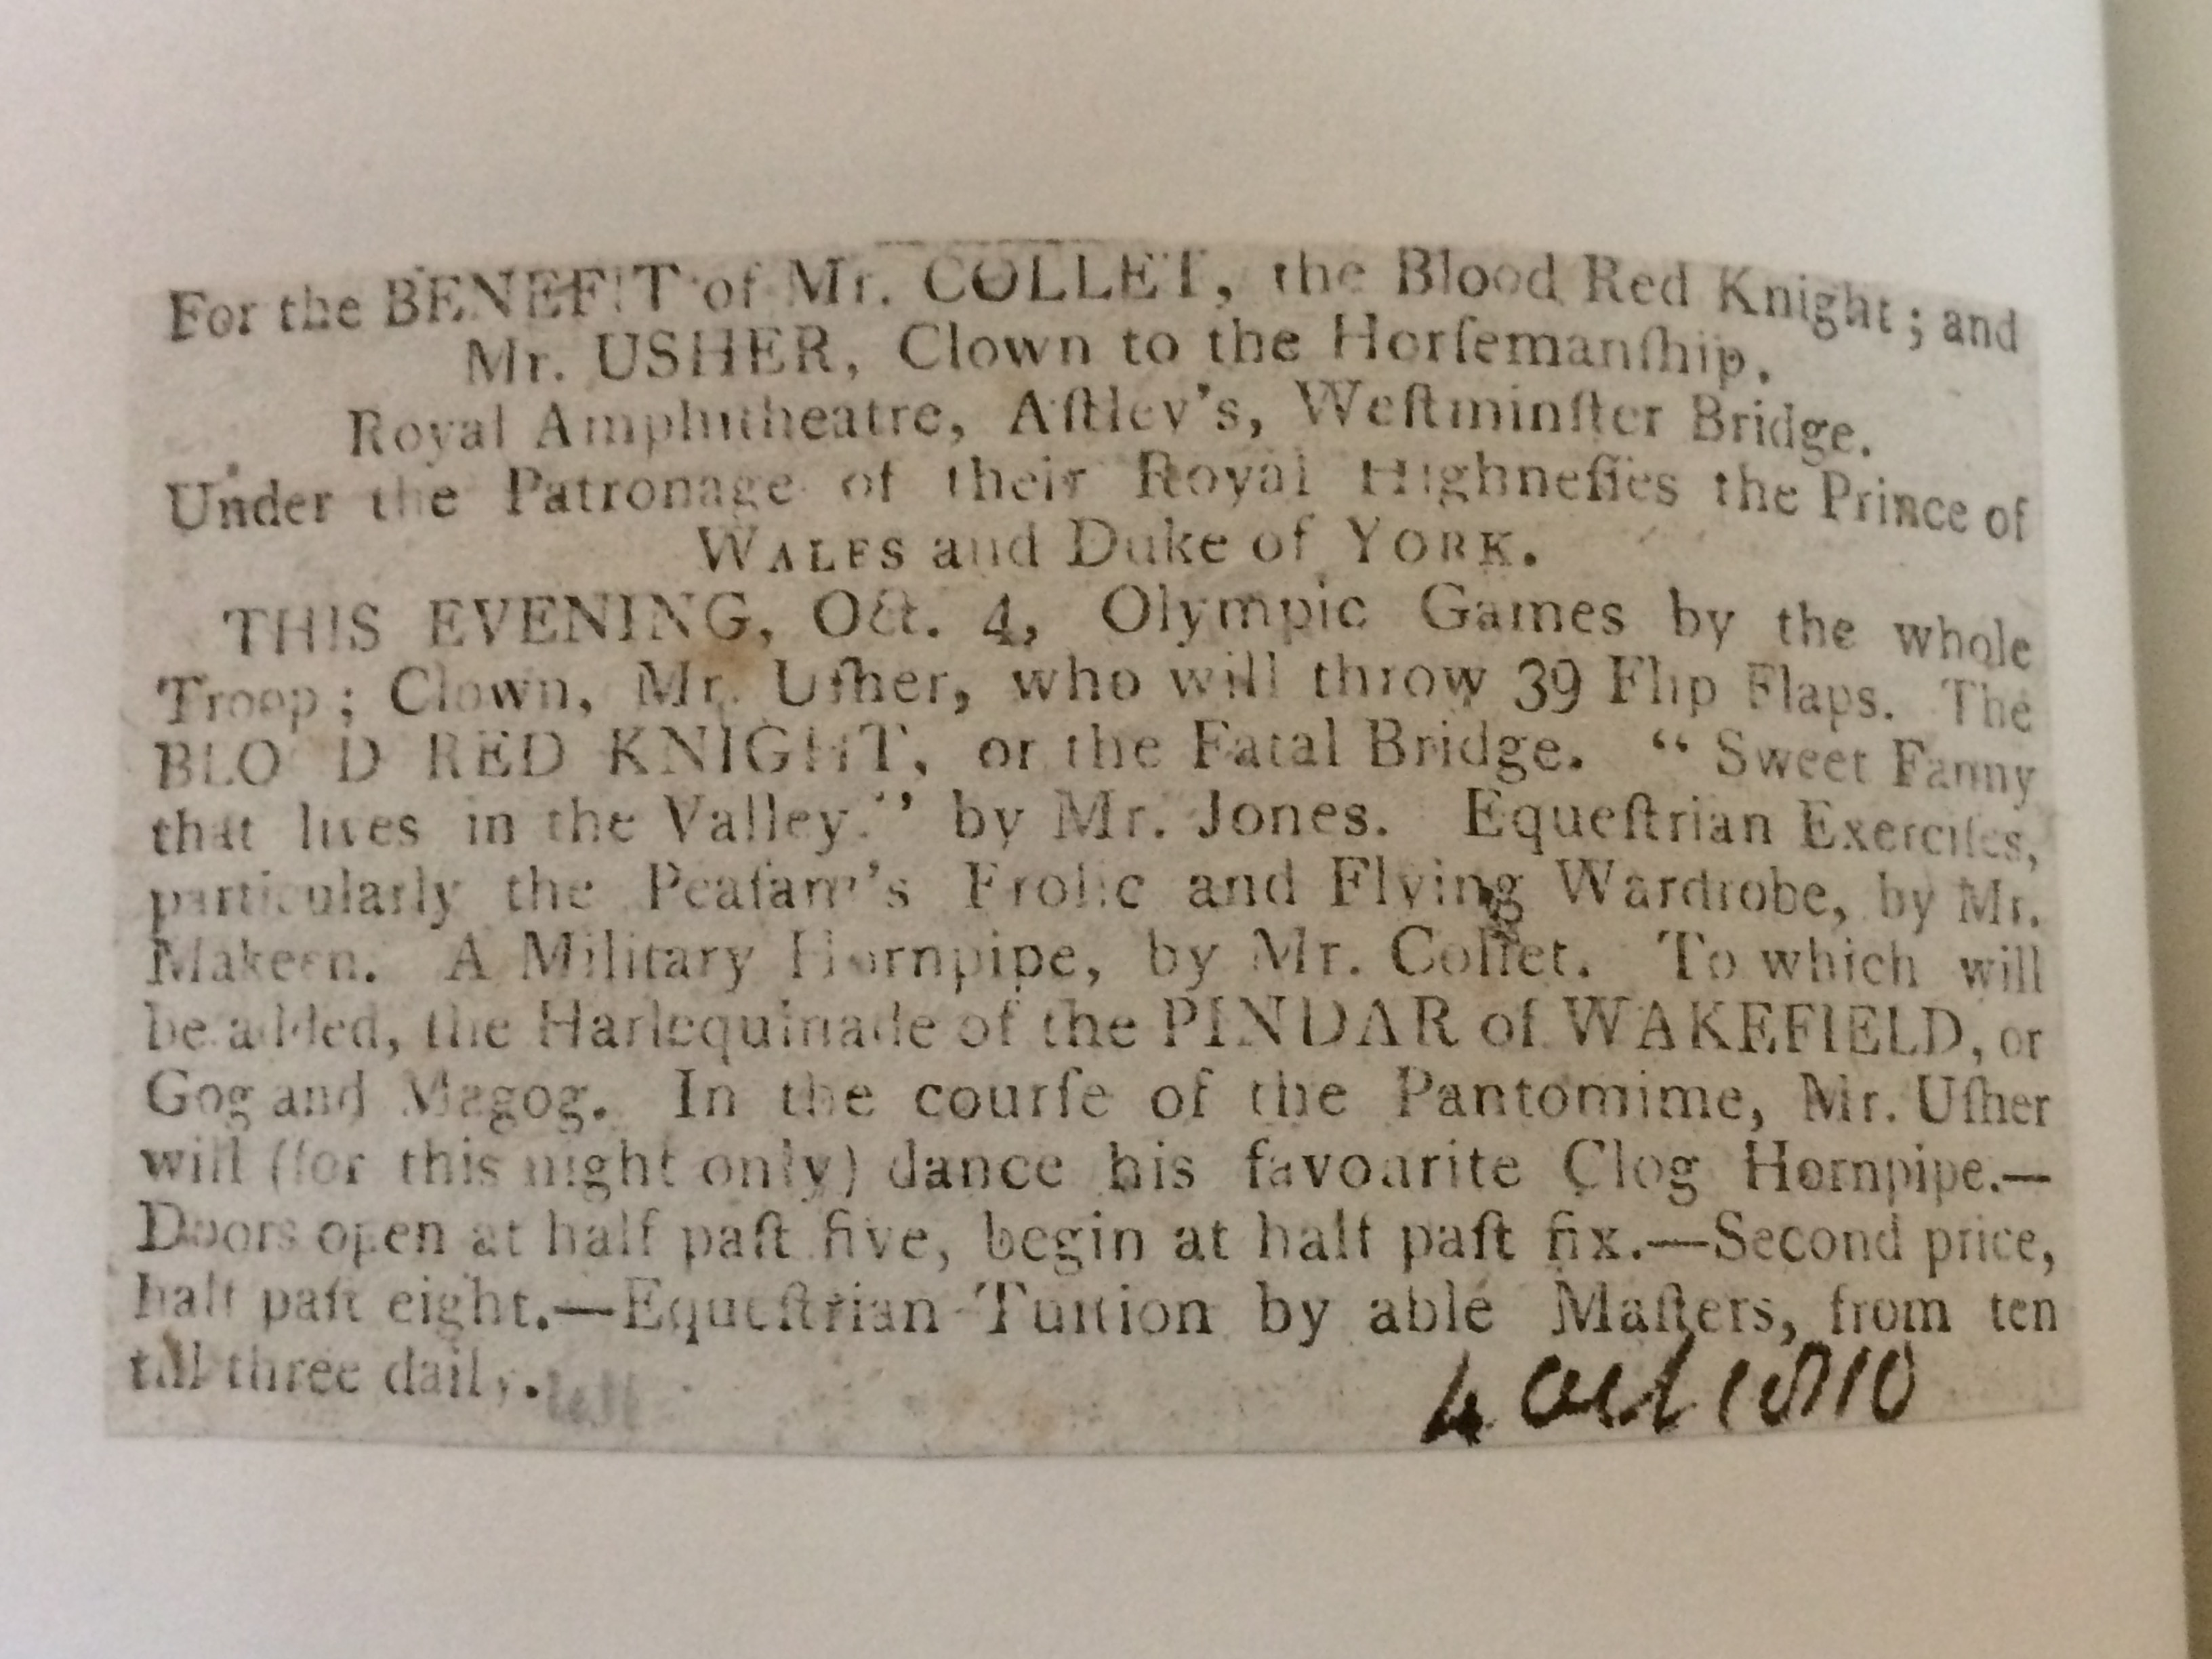 For the BENEFIT of Mr. COLLET, the Blood Red Knight; and
Mr. USHER, Clown to the Horſemanſhip.
Royal Amphitheatre, Aſtley's, Weſtminſter Bridge.
Under the Patronage of their Royal Highneſſes the Prince of
WALES and Duke of YORK.
THIS EVENING, Oct. 4, Olympic Games by the whole
Troop; Clown, Mr. Uſher, who will throw 39 Flip Flaps. The
BLOOD RED KNIGHT, or the Fatal Bridge. “ Sweet Fanny
that lives in the Valley.” by Mr. Jones. Equeſtrian Exerciſes,
particularly the Peaſant's Frolic and Flying Wardrobe, by Mr.
Makeen. A Military Hornpipe, by Mr. Collet. To which will
be added, the Harlequinade of the PINDAR of WAKEFIELD, or
Gog and Magog. In the courſe of the Pantomime, Mr. Uſher
will (for this night only) dance his favourite Clog Hornpipe.—
Doors open at half paſt five, begin at half paſt ſix.—Second price,
half paſt eight.—Equeſtrian Tuition by able Maſters, from ten
till three daily.
4 Oct 1810